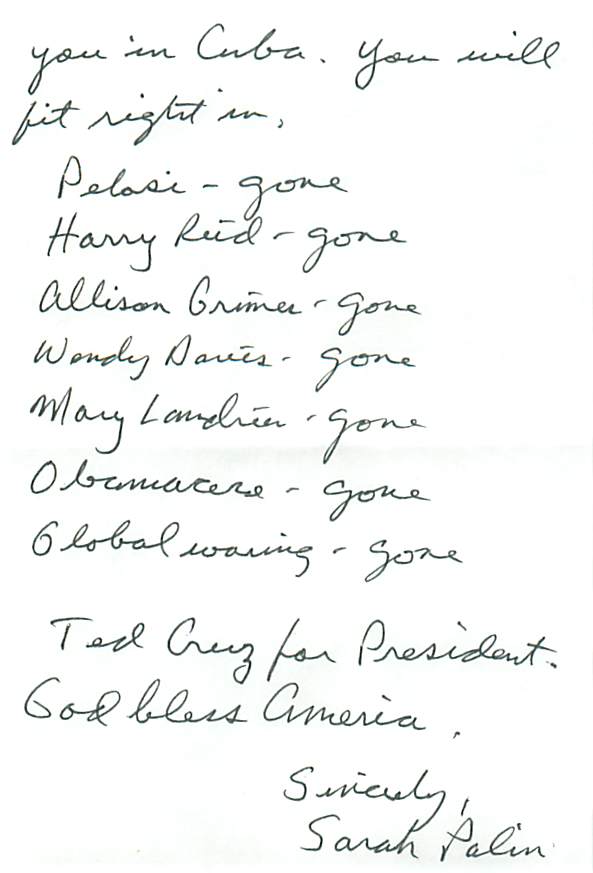 you in Cuba. You will
fit right in.
Pelosi - gone
Harry Reid - gone
Allison Grimes - gone
Wendy Davis - gone
Mary Landrieu - gone
Obamacare - gone
Global waring - gone
Ted Cruz for President.
God bless America.
Sincerely,
Sarah Palin